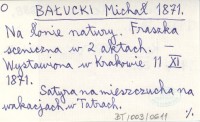 0 BAŁUCKI Michał 1871.
Na łonie natury. Fraszka
sceniczna w 2 aktach. —
Wystawiona w Krakowie 11 XI
1871.
Satyra na mieszczucha na
wakacjach w Tatrach.
BT/003/0611